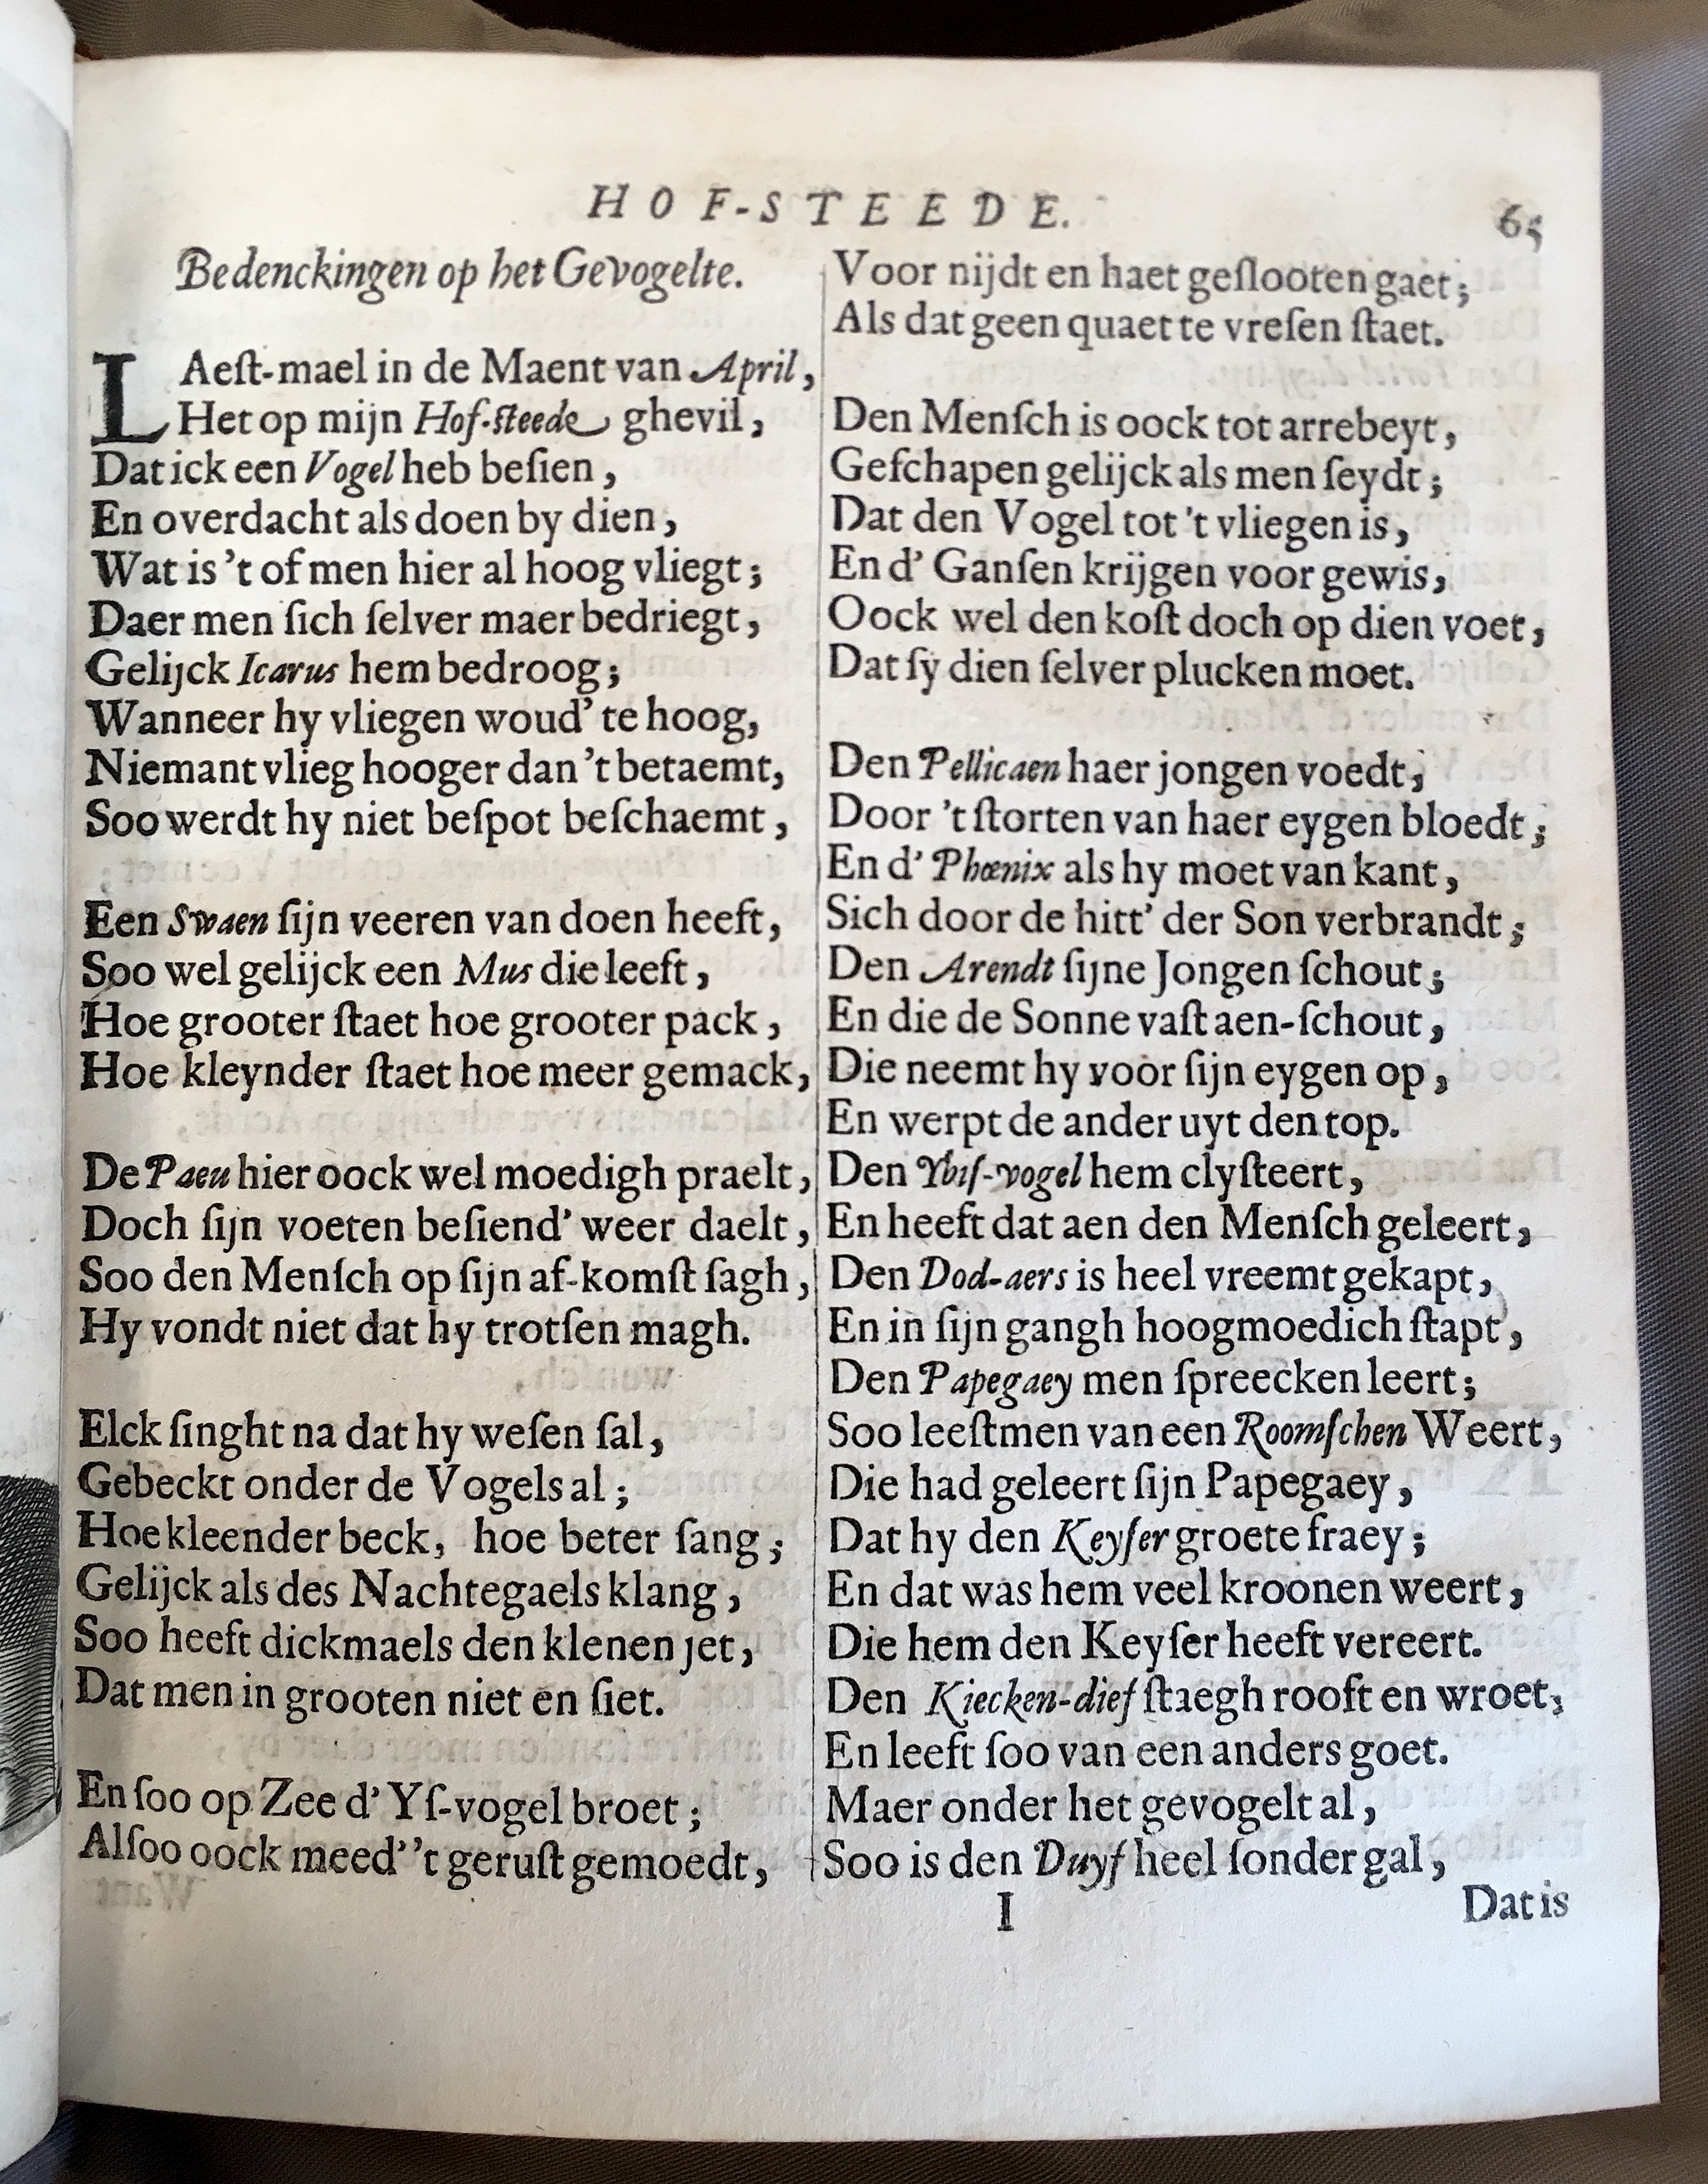 HOF-STEEDE. 65
Bedenckingen op het Gevogelte.
LAeſt-mael in de Maent van April,
Het op mijn Hof-steede ghevil,
Dat ick een Vogel heb beſien,
En overdacht als doen by dien,
Wat is 't of men hier al hoog vliegt;
Daer men ſich ſelver maer bedriegt,
Gelijck Icarus hem bedroog;
Wanneer hy vliegen woud' te hoog,
Niemant vlieg hooger dan 't betaemt,
Soo werdt hy niet beſpot beſchaemt,
Een Swaen ſijn veeren van doen heeft,
Soo wel gelijck een Mus die leeft,
Hoe grooter ſtaet hoe grooter pack,
Hoe kleynder ſtaet hoe meer gemack,
De Paeu hier oock wel moedigh praelt,
Doch ſijn voeten beſiend' weer daelt,
Soo den Menſch op ſijn af-komſt ſagh,
Hy vondt niet dat hy trotſen magh.
Elck ſinght na dat hy weſen ſal,
Gebeckt onder de Vogels al;
Hoe kleender beck, hoe beter ſang;
Gelijck als des Nachtegaels klang,
Soo heeft dickmaels den klenen jet,
Dat men in grooten niet en ſiet.
En ſoo op Zee d' Yſ-vogel broet;
Alſoo oock meed' 't geruſt gemoedt,
Voor nijdt en haet geſlooten gaet;
Als dat geen quaet te vreſen ſtaet.
Den Menſch is oock tot arrebeyt,
Geſchapen gelijck als men ſeydt;
Dat den Vogel tot 't vliegen is,
En d' Ganſen krijgen voor gewis,
Oock wel den koſt doch op dien voet,
Dat ſy dien ſelver plucken moet.
Den Pellicaen haer jongen voedt,
Door 't ſtorten van haer eygen bloedt;
En d' Phœnix als hy moet van kant,
Sich door de hitt' der Son verbrandt;
Den Arendt ſijne Jongen ſchout;
En die de Sonne vaſt aen-ſchout,
Die neemt hy voor ſijn eygen op,
En werpt de ander uyt den top.
Den Ybiſ-vogel hem clyſteert,
En heeft dat aen den Menſch geleert,
Den Dod-aers is heel vreemt gekapt,
En in ſijn gangh hoogmoedich ſtapt,
Den Papegaey men ſpreecken leert;
Soo leeſtmen van een Roomſchen Weert,
Die had geleert ſijn Papegaey,
Dat hy den Keyſer groete fraey;
En dat was hem veel kroonen weert,
Die hem den Keyſer heeft vereert.
Den Kiecken-dief ſtaegh rooft en wroet,
En leeft ſoo van een anders goet.
Maer onder het gevogelt al,
Soo is den Duyf heel ſonder gal,
I Dat is